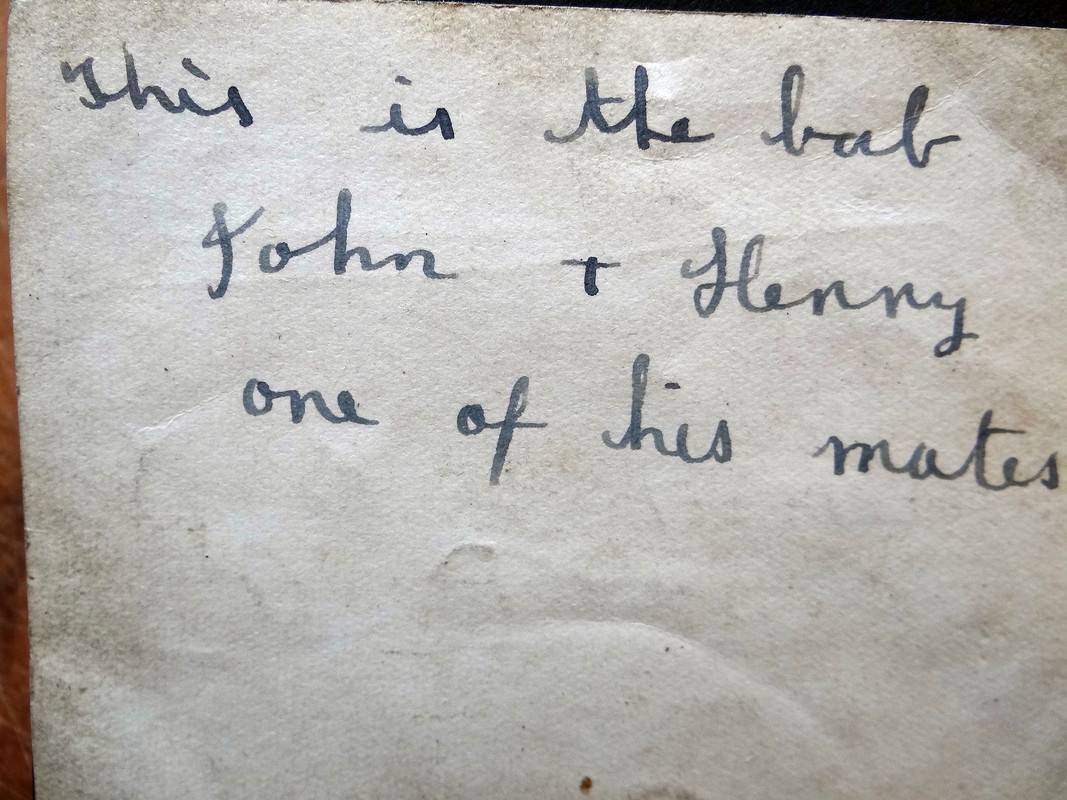 This is the bab
John + Henny
one of his mates